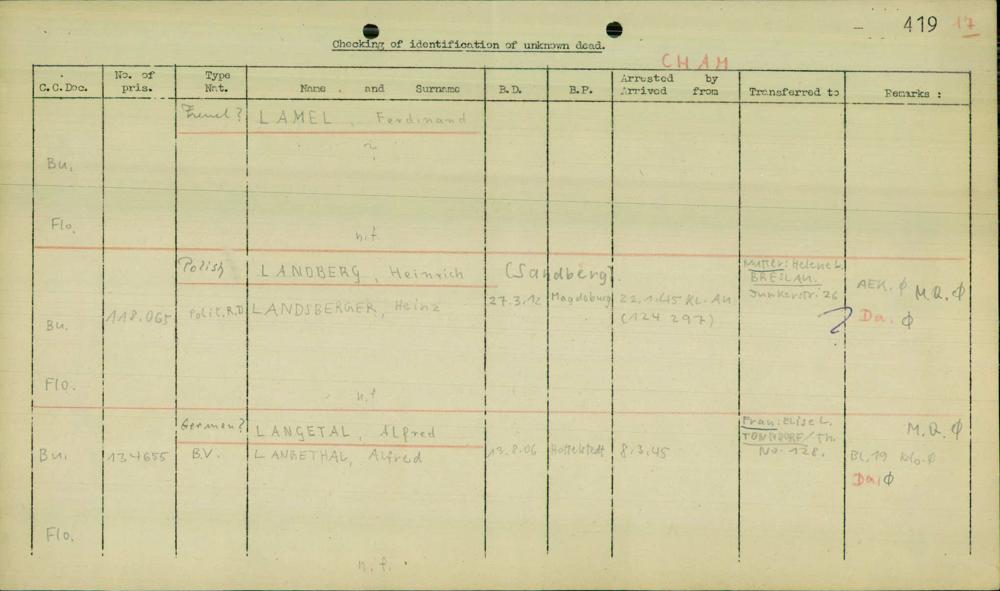 – 419 17
Checking of identification of unknown dead.
CHAM
C.C.Doc. No. of pris. Type Nat. Name and Surname B.D. B.P. Arrested by Arrived from Transferred to Remarks :
French? LAMEL, Ferdinand
Bu.
Flo. n.f.
Polish LANDBERG, Heinrich (Sandberg). Mutter: Helene L.
BRESLAU.
Junkerstr. 26
Bu. 118.065 Polit.R.D. LANDSBERGER, Heinz 27.3.12 Magdeburg 22.1.45 KL. Au
(124 297)
AEK. Ø M.Q. Ø
Da. Ø
Flo. n.f
German? LANGETAL, Alfred Frau: Elise L.
TONNDORF/Th.
No. 128.
M.Q. Ø
Bu. 134655 B.V. LANGETHAL, Alfred 13.8.06 Hottelstedt 8.3.45 Bl.19 Klo. Ø
Da. Ø
Flo.
n.f.